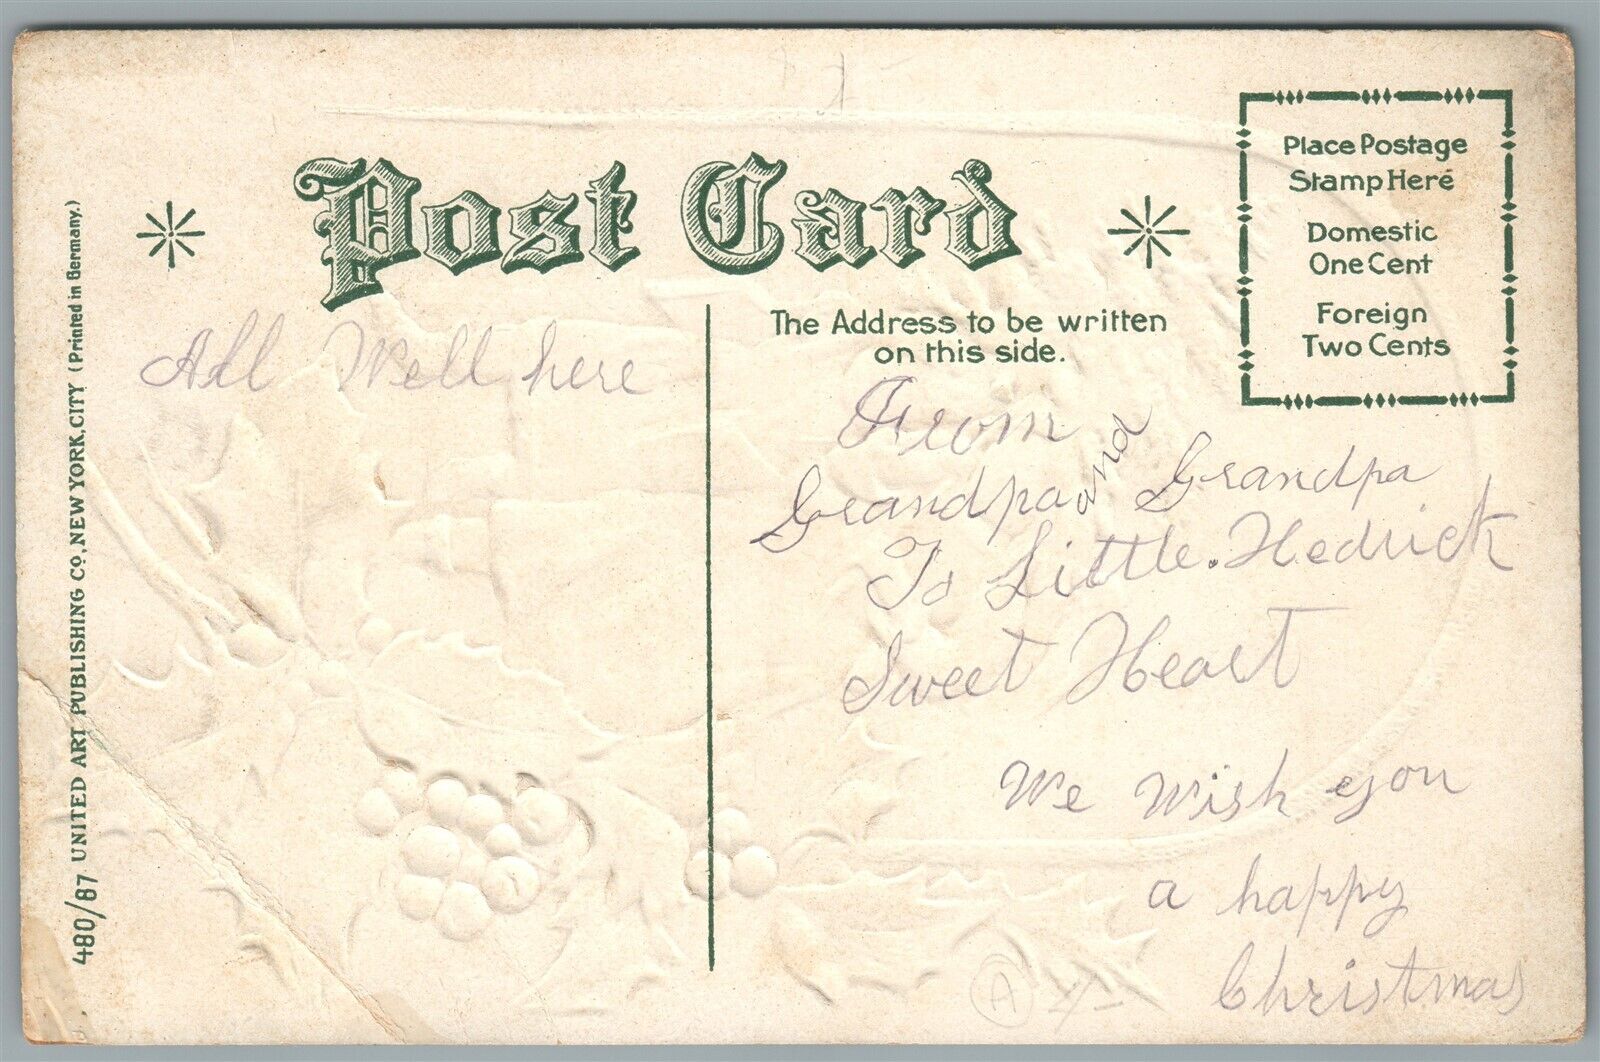 Post Card
Place Postage
Stamp Here
Domestic
One Cent
Foreign
Two Cents
The Address to be written
on this side.
480/87 UNITED ART PUBLISHING CO., NEW YORK, CITY (Printed in Germany.)
All Well here
From
Grandpa and Grandpa
To Little. Hedrick
Sweet Heart
We Wish you
a happy
Christmas
A 4-